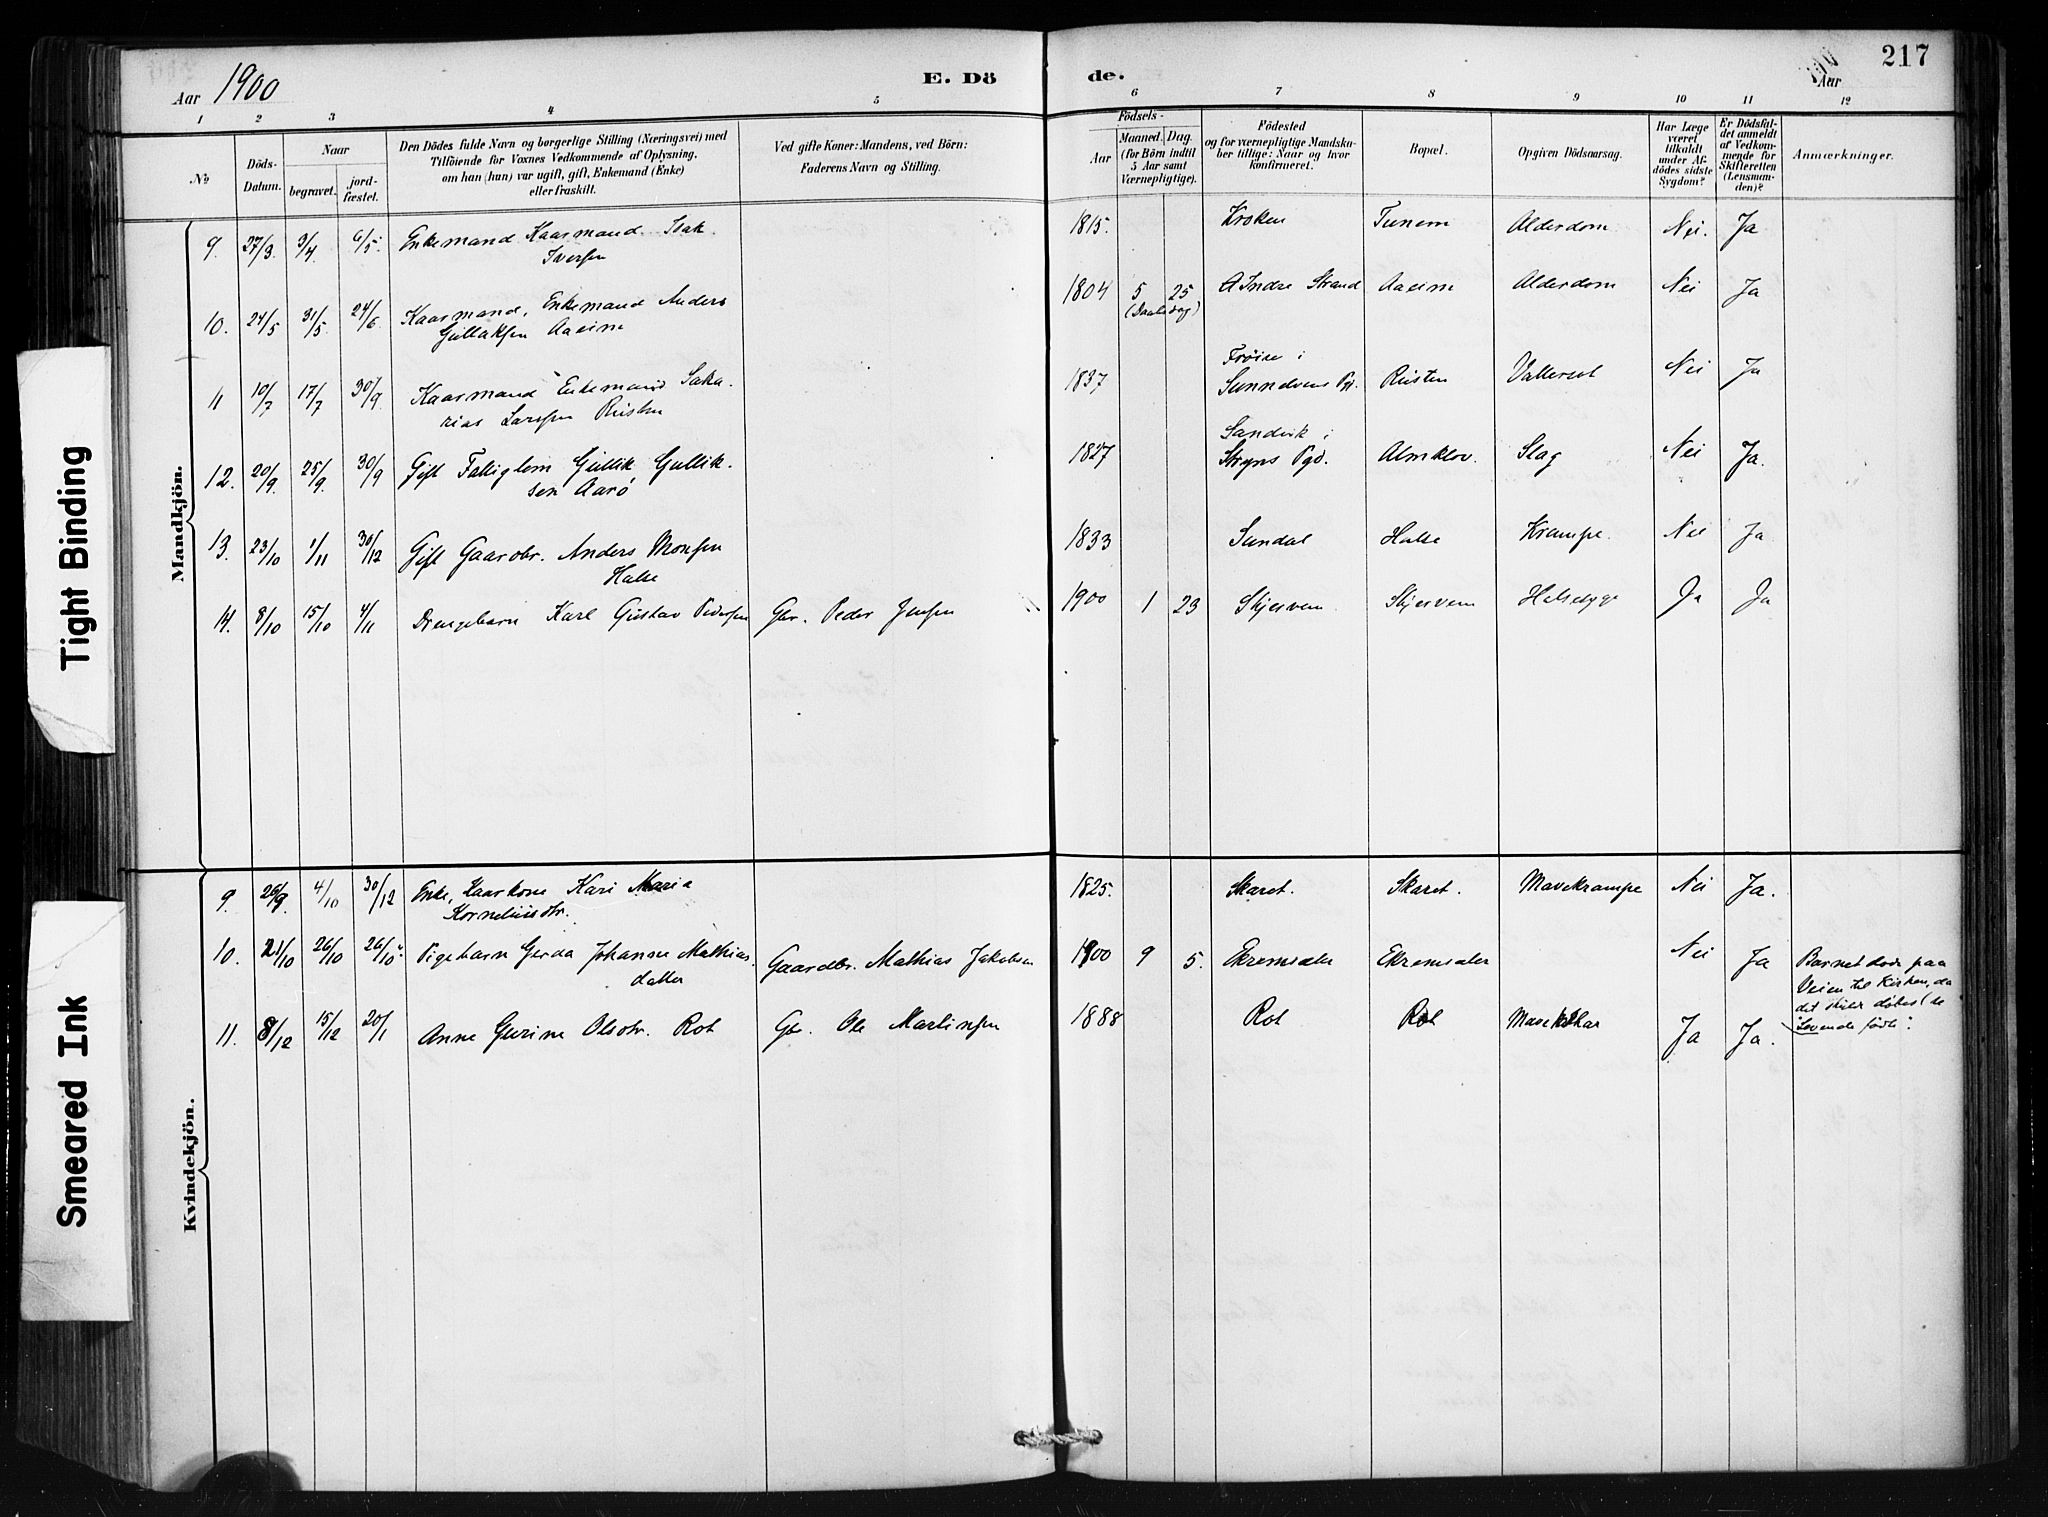 Tight Binding
Smeared Ink
217
Aar 1900
E. Dö de.
Aar
1 2 3 4 5 6 7 8 9 10 11 12
№
Döds-
Datum.
Naar
begravet.
jord-
fæstet.
Den Dödes fulde Navn og borgerlige Stilling (Næringsvei) med
Tilföiende for Voxnes Vedkommende af Oplysning,
om han (hun) var ugift, gift, Enkemand (Enke)
eller fraskilt.
Ved gifte Koner: Mandens, ved Börn:
Faderens Navn og Stilling.
Födsels-
Aar
Maaned. Dag.
(for Börn indtil
5 Aar samt
Værnepligtige).
Födested
og for værnepligtige Mandska-
ber tillige: Naar og hvor
konfirmeret.
Bopæl.
Opgiven Dödsaarsag.
Har Læge
været
tilkaldt
under Af-
dödes sidste
Sygdom?
Er Dödsfal-
det anmeldt
af Vedkom-
mende for
Skifteretten
(Lensman-
den)?
Anmærkninger.
Mandkjön.
9. 27/3 3/4 6/5 Enkemand Kaarmand Isak 1815. Kroken Tunem Alderdom Nei. Ja
Iversen
10. 24/5 31/5 24/6 Kaarmand, Enkemand Anders 1804 5 25 Indre Strand Aaeim Alderdom Nei Ja
Gullaksen Aaeim (Daabsdag)
11 10/7 17/7 30/9 Kaarmand Enkemand Saka- 1837 Frøise i Rusten Vattersot Nei Ja
rias Larssen Rusten Sunnelvens Pgd.
12. 20/9. 25/9. 30/9 Gift Fattiglem Gullik Gullik- 1827 Sandvik i Almklov. Slag Nei Ja.
sen Aarø Stryns Pgd.
13. 23/10 1/11 30/12 Gift Gaardbr. Anders Monsen 1833 Sundal Halse Krampe. Nei Ja
Halse
14. 8/10 15/10 4/11 Drengebarn Karl Gustav Pedersen Gbr. Peder Jensen 1900 1 23 Skjervem. Skjervem Halsesyge Ja Ja
Kvindekjön.
9. 26/9. 4/10 30/12 Enke, Kaarkone Kari Maria 1825. Skaret. Skaret. Mavekrampe Nei Ja.
Korneliusdtr.
10. 21/10 26/10 26/10 Pigebarn Gerda Johanne Mathias- Gaardbr. Mathias Jakobsen 1900 9 5. Ekremsæter Ekremsæter Nei Ja Barnet døde paa
datter Veien til Kirken, da
det skulde døbes (se
"Levende fødte".
11. 8/12 15/12 20/1 Anne Gurine Olsdtr. Rot Gbr. Ole Martinsen 1888 Rot Rot Ja Ja.